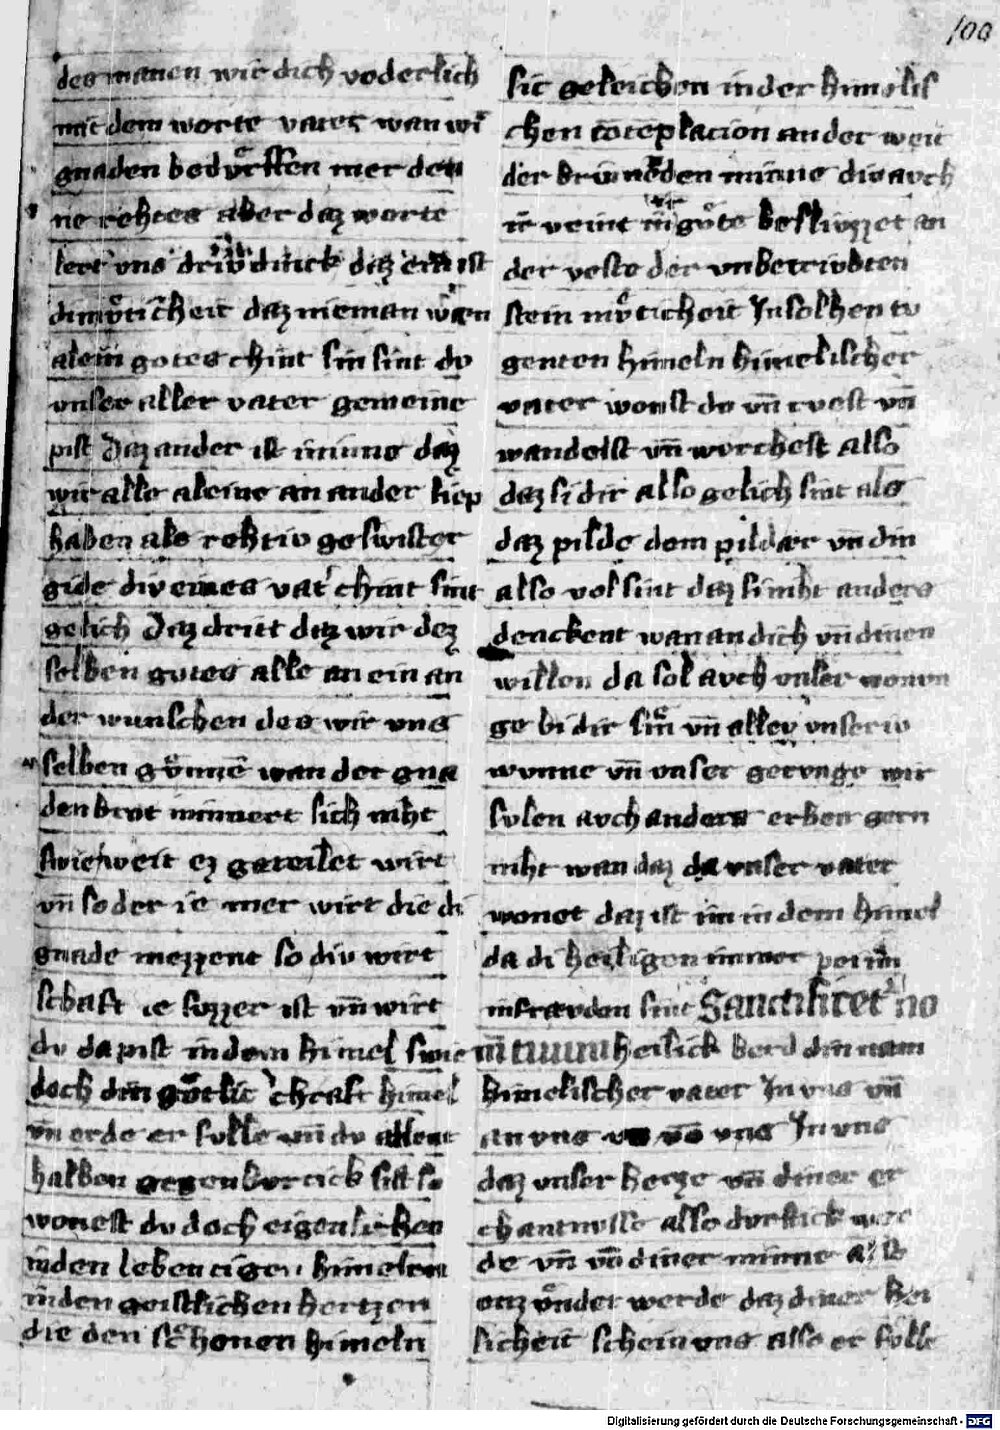 100
des manen wir dich voderlich
mit dem worte vater wan wir
gnaden bedvͤrffen mer den
ne rehtes aber daz worte
lert vns driv dinck daz erst ist
dimvͤticheit daz nieman
alein gotes chint sin sint dv
vnser aller vater gemeine
pist Daz ander ist minne daz
wir alle aleine an ander liep
haben als rehtiv geswister
gide div eines vat' chint sint
gelich Daz dritt daz wir dez
selben gvtes alle an ein an
der wunschen des wir vns
selben gvͤnnē wan der gna
den brot minnert sich niht
swie weit ez geteilet wirt
vn̄ so der ie mer wirt die di
gnade niezzent so div wirt
schaft ie svzzer ist vn̄ wirt
dv da pist in dem himel swie
doch din gotlic chraft himel
vn̄ erde er fulle vn̄ dv allent
halben gegenburtick sist so
wonest dv doch eigenlichen
in den lebentigen himeln
in den geistlichen hertzen
die den schonen himeln
sit geleichen in der himelis
chen cōtēplacion an der weit
der brinneden minne div avch
veint gvͤte beslivzzet an
der veste der vnbetrivbten
stein mvͤticheit In solhen tv
genten himeln himelischer
vater wonst dv vn̄ rvest vn̄
wandelst vn̄ worchest also
daz si dir also gelich sint als
daz pilde dem pildær vn̄ din
also vol sint daz si niht anders
denckent wan an dich vn̄ dinen
willen da sol avch vnser wonvn
ge bi dir sin vn̄ allev vnseriv
wunne vn̄ vnser gervnge wir
sulen avch anders erben gern
niht wan daz da vnser vater
wonet daz ist im in dem himel
da di heiligen immer pei im
in fravden sint Sanctificet' no
m̄ tuum heilick werd din nam
himelischer vater In vns vn̄
an vns vō vns In vns
daz vnser hercze vn̄ diner er
chantnvsse also dvrstick wer
de vn̄ vō diner minne als
enzvͤndet werde daz diner hei
licheit schein vns also er fulle
Digitalisierung gefördert durch die Deutsche Forschungsgemeinschaft - DFG